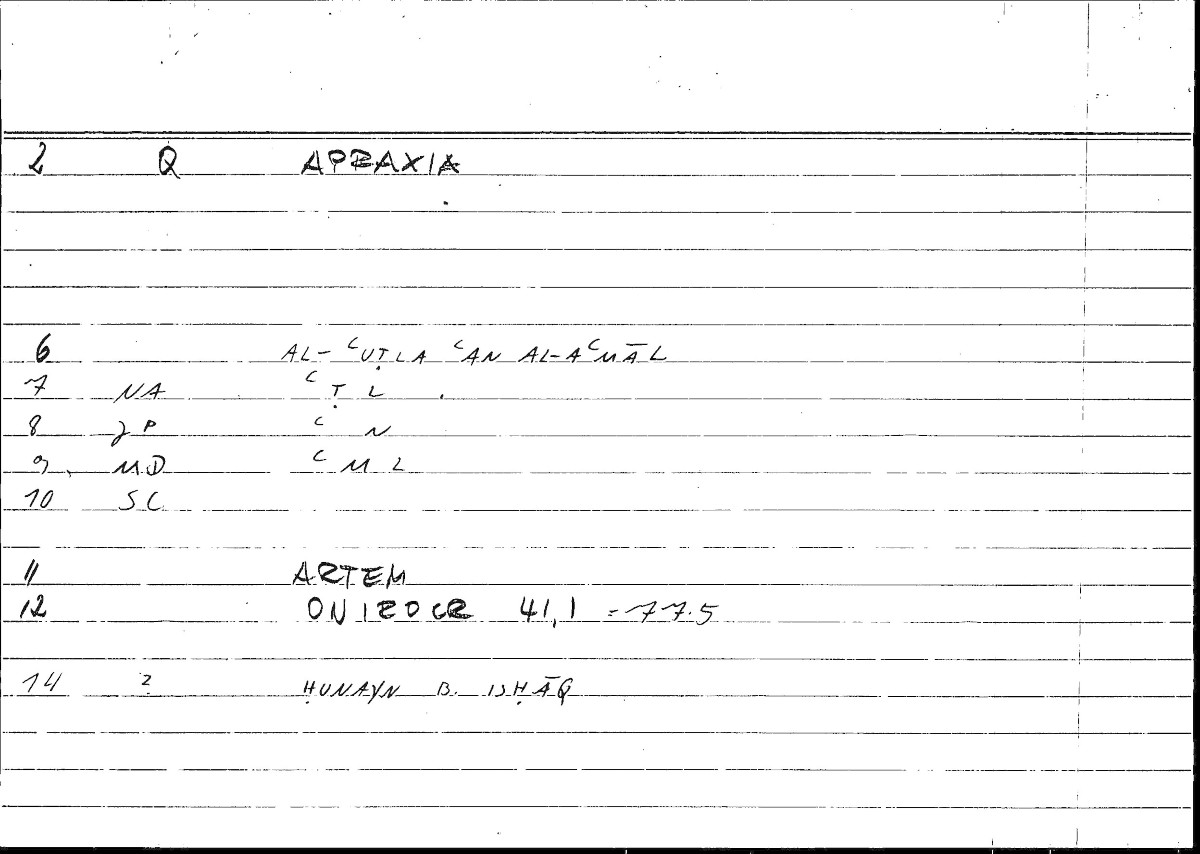 2 Q APRAXIA
6 AL-ʿUṬLA ʿAN AL-AʿMĀL
7 NA ʿ Ṭ L
8 JP ʿ N
9 MD ʿ M L
10 SC
11 ARTEM
12 ONIROCR 41,1 = 77.5
14 2 ḤUNAYN B. ISḤĀQ